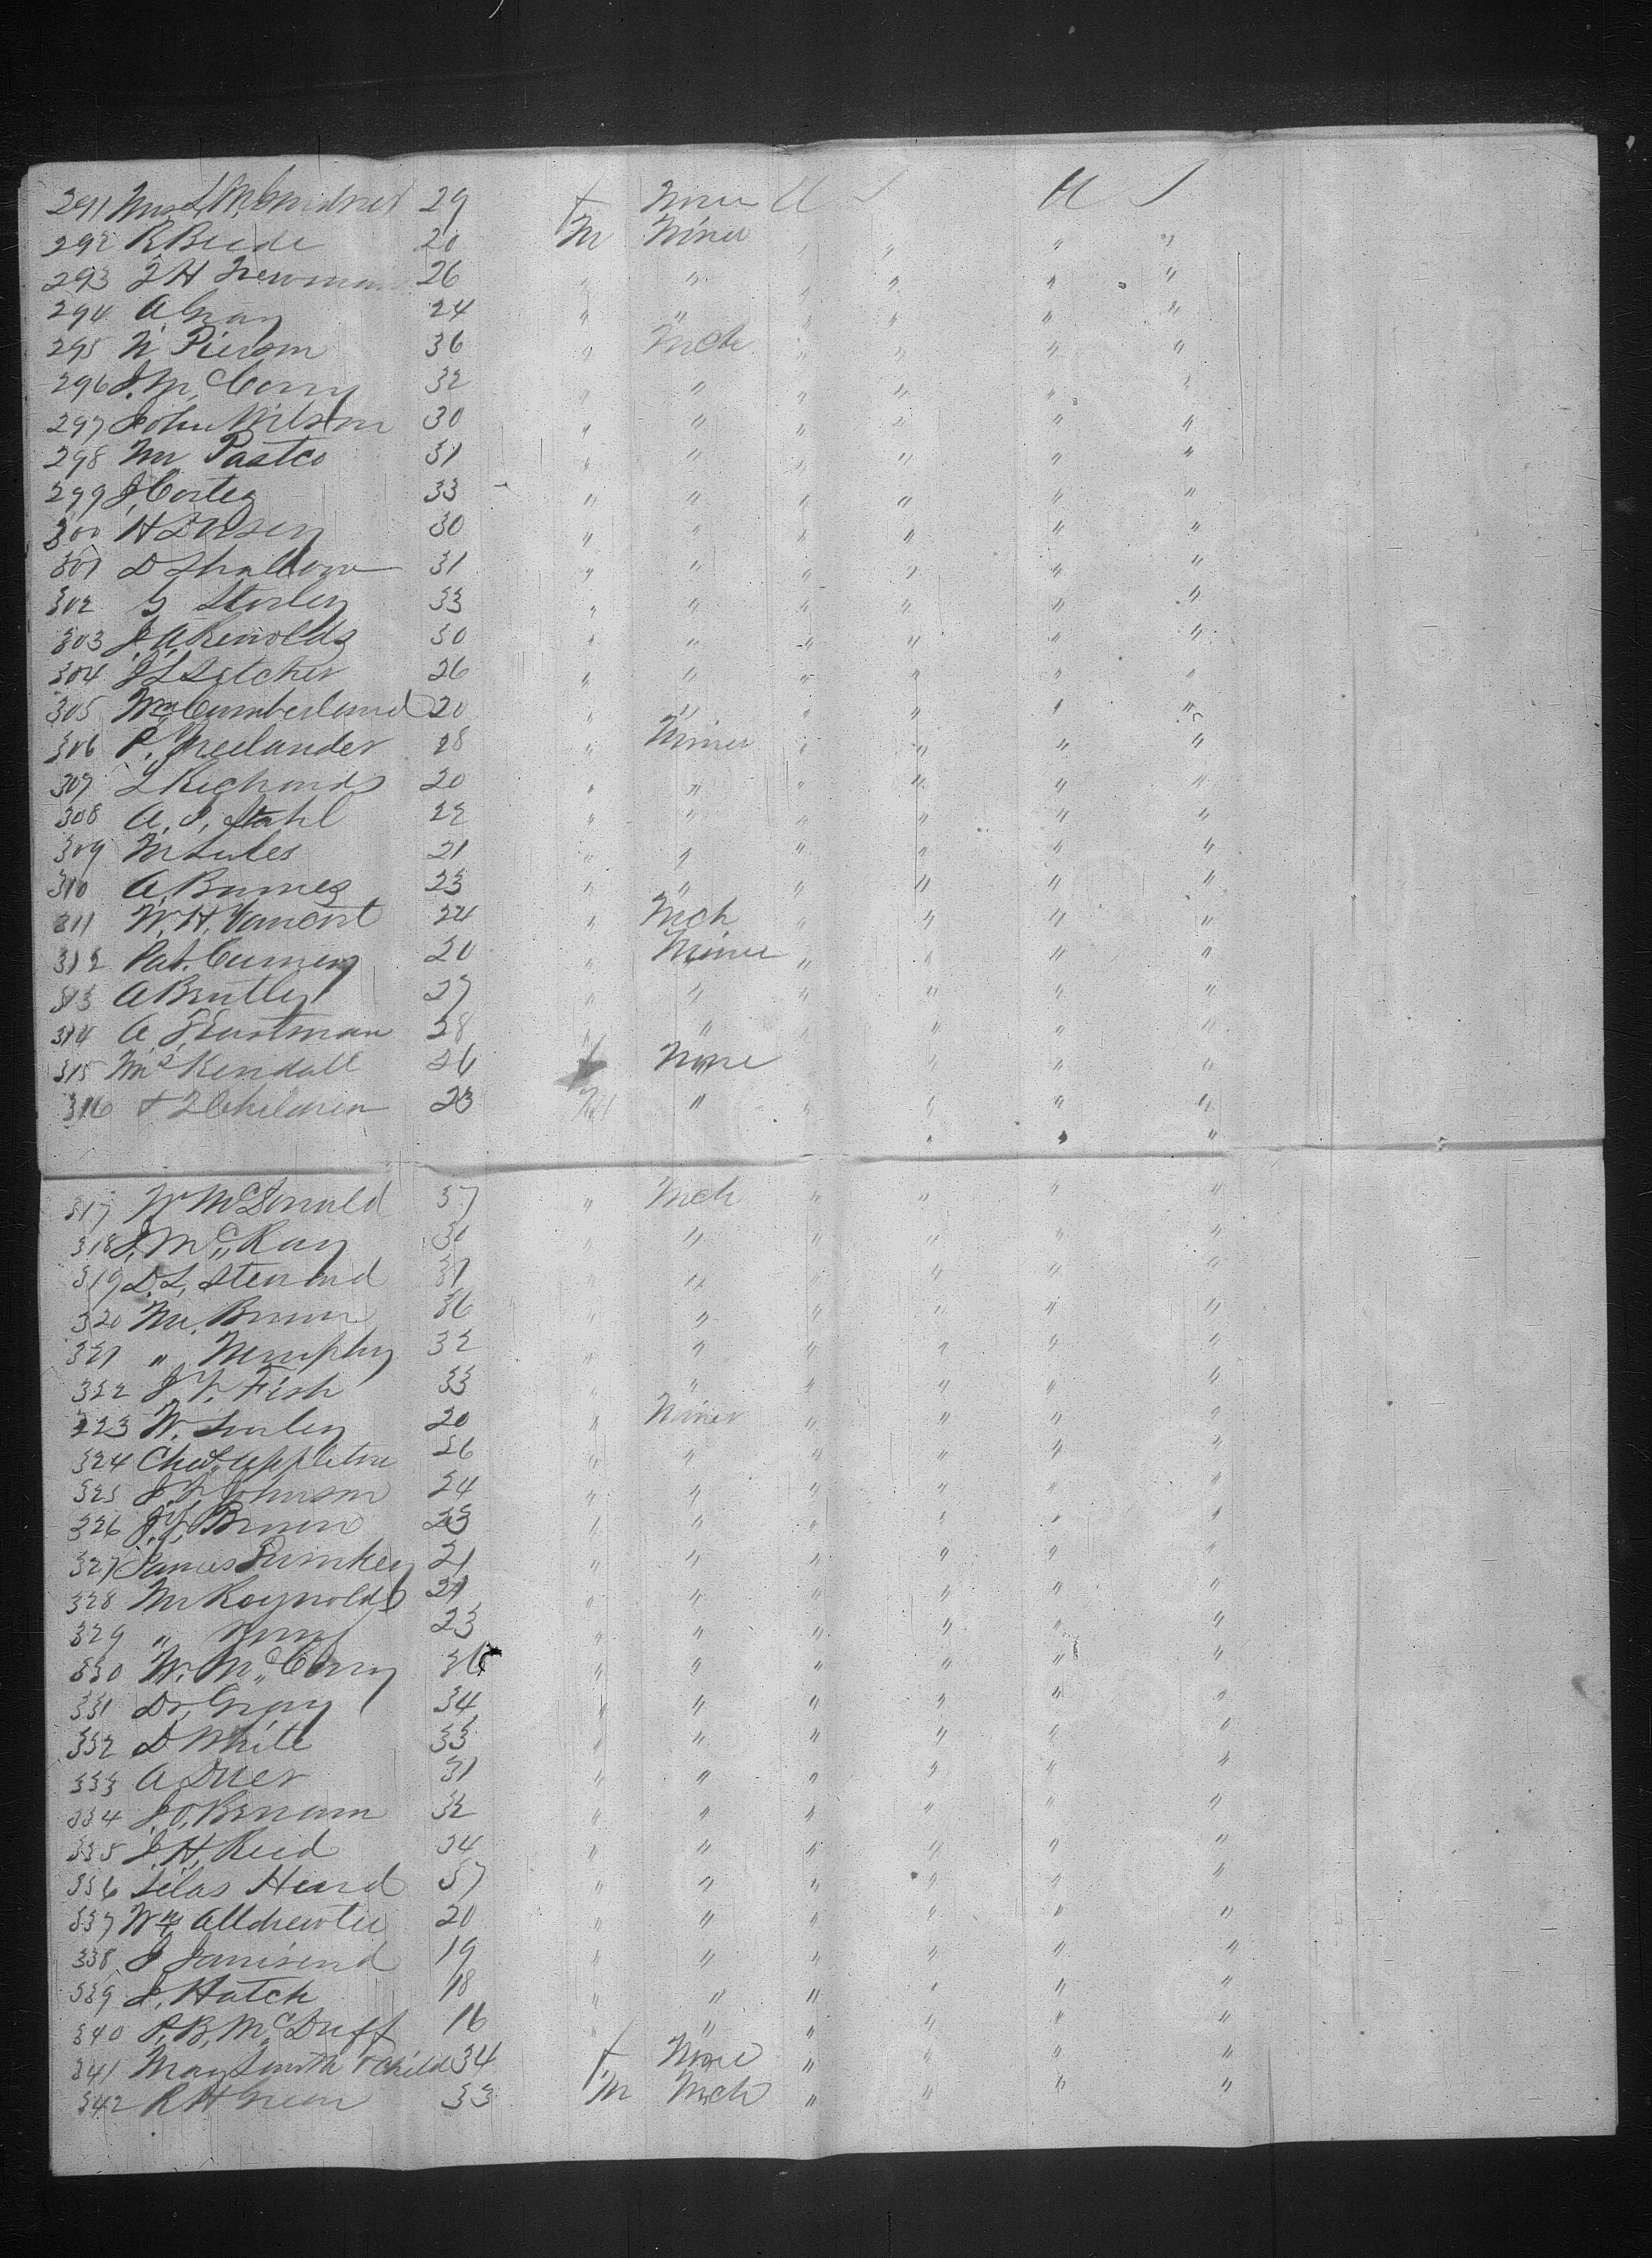 291 Mrs. 29 f None U S U S
292 R Beede 20 M Miner " " " "
293 J H Newman 26 " " " " " "
294 A Gray 24 " " " " " "
295 W Pierson 36 " Mch " " " "
296 J. McCorry 32 " " " " " "
297 John Wilson 30 " " " " " "
298 Mr Pastco 31 " " " " " "
299 J. Cortez 33 " " " " " "
300 H 30 " " " " " "
301 D Shallow 31 " " " " " "
302 G Storley 33 " " " " " "
303 J. A. Reinolds 30 " " " " " "
304 J L Letcher 26 " " " " " "
305 Wm Cumberland 20 " " " " " "
306 P. Freelander 28 " Miner " " " "
307 L Richards 20 " " " " " "
308 A. J. Stahl 22 " " " " " "
309 M Lules 21 " " " " " "
310 A. Burnes 23 " " " " " "
311 W. H. Vancort 24 " Mch " " " "
312 Pat. Cumney 20 " Miner " " " "
313 A Bentley 27 " " " " " "
314 A Eastman 28 " " " " " "
315 Mrs Kendall 26 f None " " "
316 & 2 Children 23 M " " " " "
" " "
317 W McDonald 37 " Mch " " " "
318 J. McKay 31 " " " " "
319 D. L. Steward 31 " " " " " "
320 Mr. Brown 36 " " " " " "
321 " Murphy 32 " " " " " "
322 J. F. Fish 33 " " " " " "
323 W. Turley 20 " Miner " " " "
324 Chas. Appleton 26 " " " " " "
325 J. F. Johnson 24 " " " " " "
326 J. Y. Brown 23 " " " " " "
327 James Rumkey 21 " " " " " "
328 Mr Reynolds 21 " " " " " "
329 " 23 " " " " " "
330 W. McCorry 36 " " " " " "
331 Dr. Gray 34 " " " " " "
332 D White 33 " " " " " "
333 A Duer 31 " " " " " "
334 J. O. Benham 32 " " " " " "
335 J. H. Reed 34 " " " " " "
336 Silas Heard 37 " " " " " "
337 Wm Alldrewtee 20 " " " " " "
338 J Janisend 19 " " " " " "
339 J. Hatch 18 " " " " " "
340 P. B. McDuff 16 " " " " " "
341 Mary Smith & child 34 f None " " " "
342 R H Green 33 M Mch " " " "